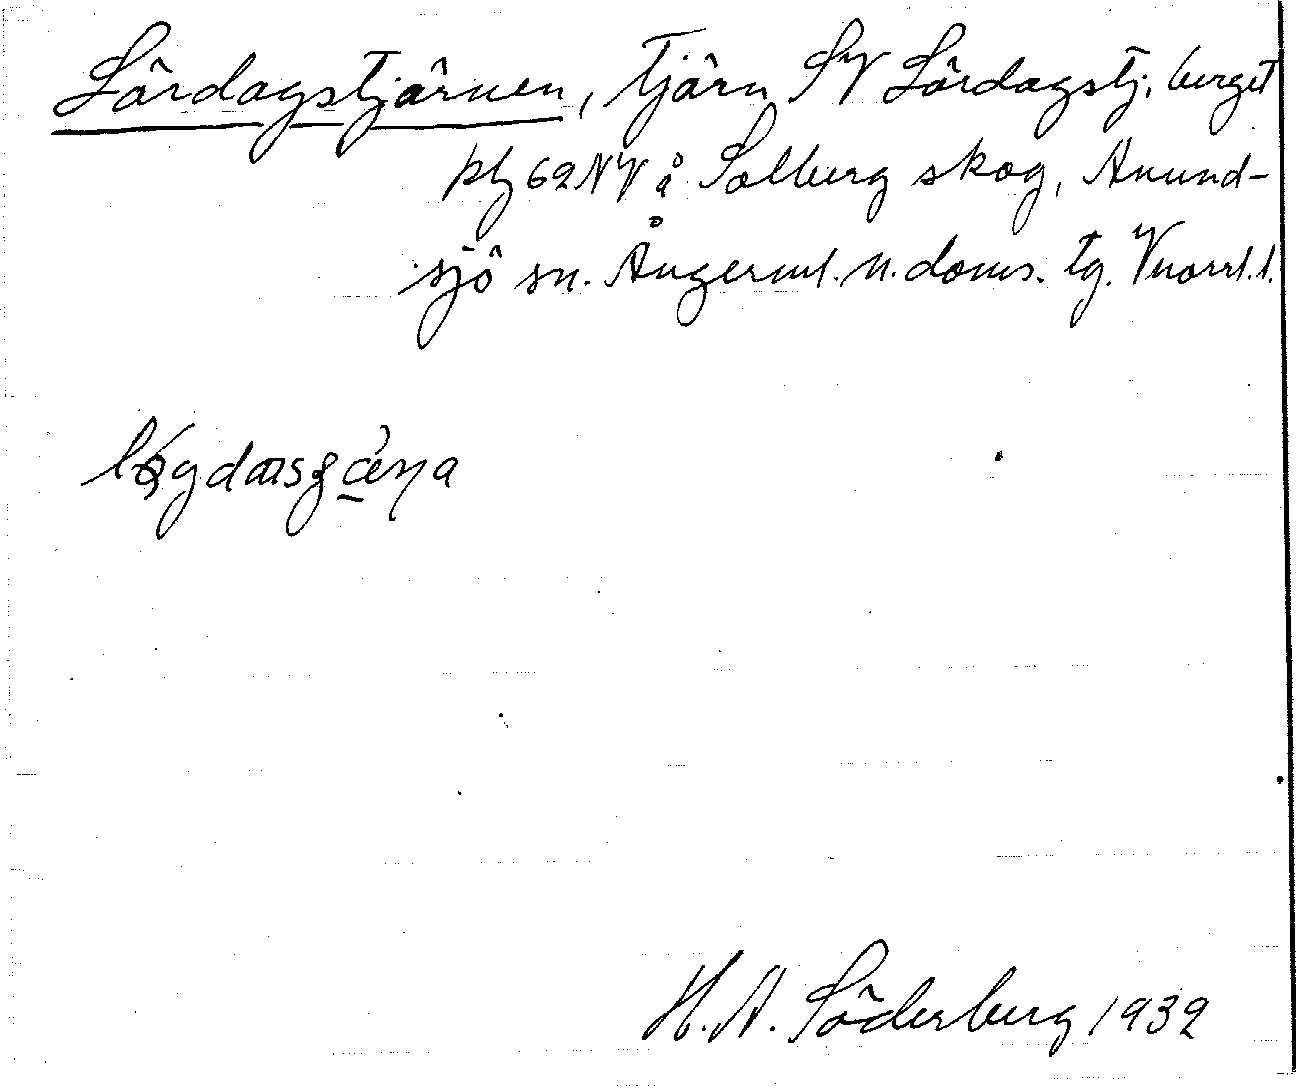 Lördagstjärnen, tjärn SV Lördagstj. berget
pħ 62 NV å Solberg skog, Anund-
sjö sn. Ångerml. n. doms. tg. Vnorrl. l.
H. A. Söderberg 1932